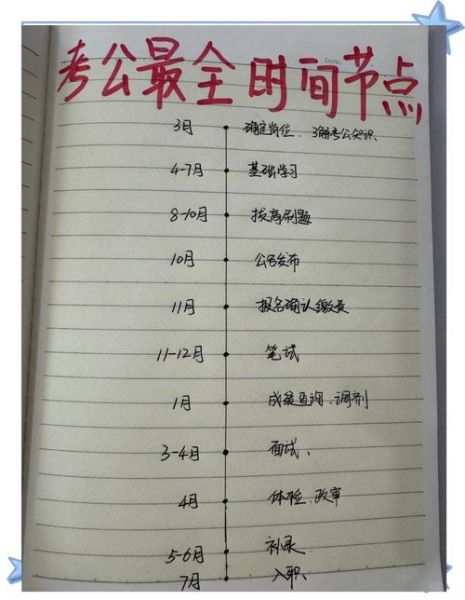 考公最全时间节点
Date.
3月 确定岗位、了解考公知识
4-7月 基础学习
8-10月 拔高刷题
10月 公告发布
11月 报名确认缴费
11-12月 笔试
1月 成绩查询、调剂
3-4月 面试、
4月 体检、政审
5-6月 补录
7月 入职